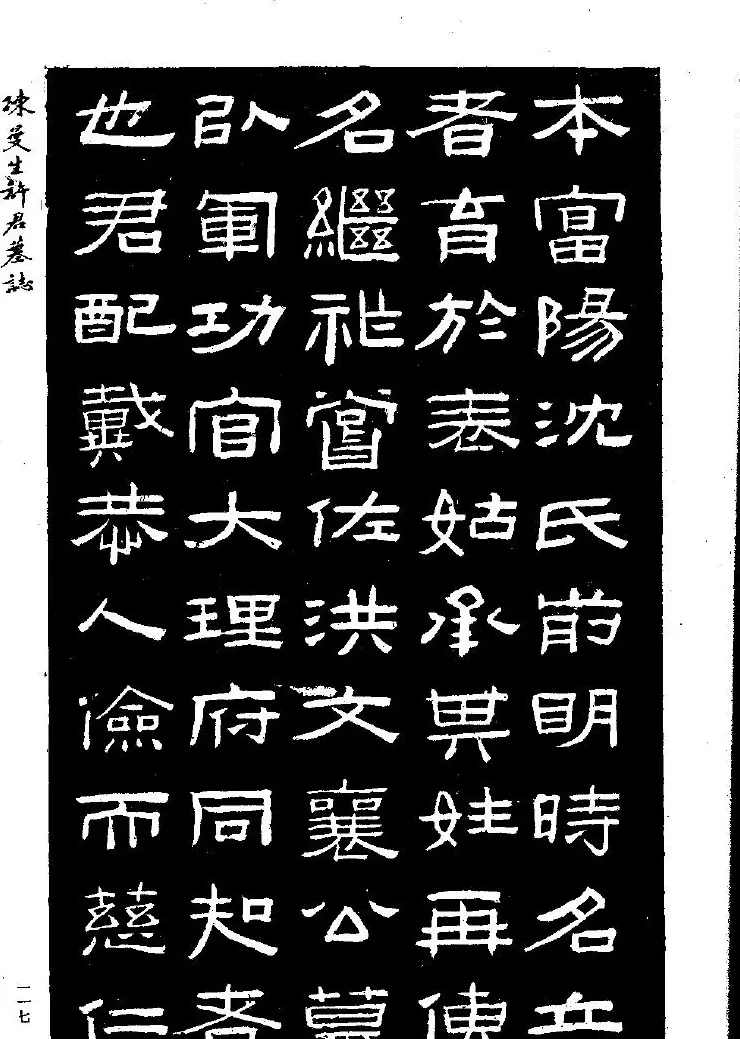 本富陽沈氏前明時名
者育於表姑承異姓再傳
名繼祉嘗佐洪文襄公幕
以軍功官大理府同知者
也君配戴恭人儉而慈仁
陳曼生許君墓誌
一一七